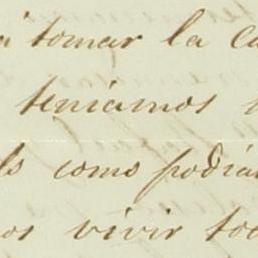 á tomar la ca
teníamos
ls como podía
os vivir to